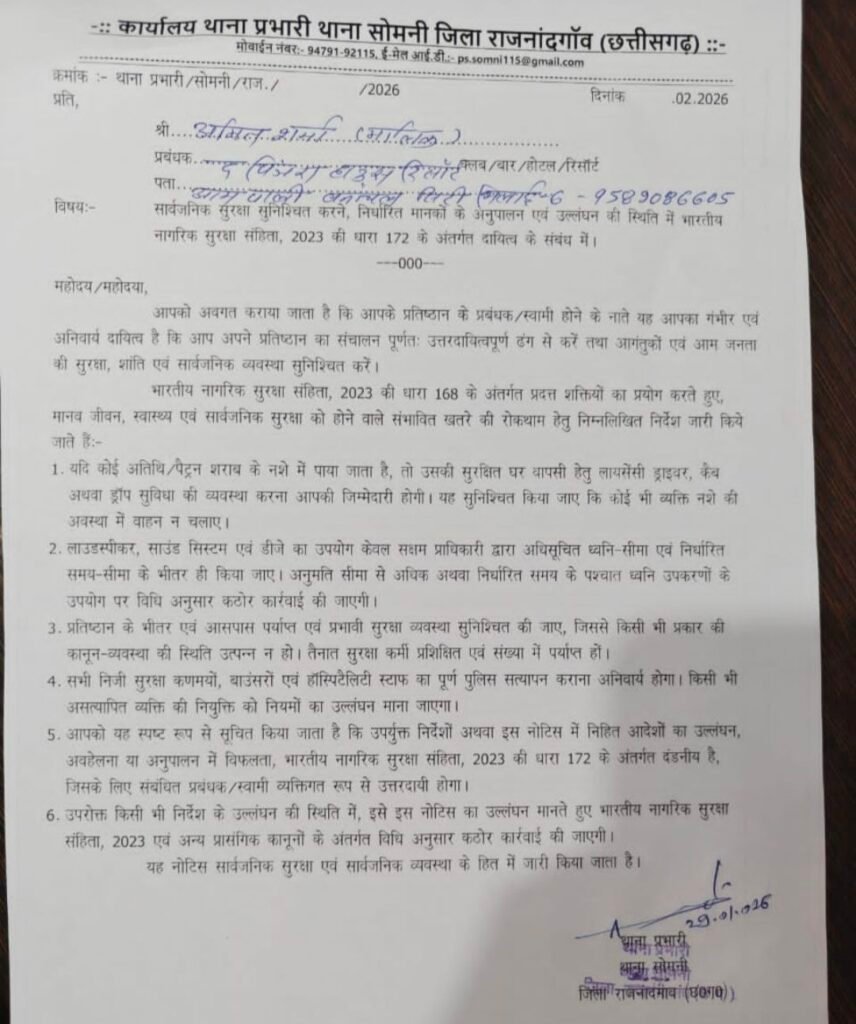 -:: कार्यालय थाना प्रभारी थाना सोमनी जिला राजनांदगॉव (छत्तीसगढ़) ::-
मोबाईन नंबरः- 94791-92115, ई-मेल आई.डी.:- ps.somni115@gmail.com
क्रमांक :- थाना प्रभारी/सोमनी/राज./ /2026 दिनांक .02.2026
प्रति,
श्री....अमित शर्मा (मालिक)
प्रबंधक....द पिंजरा हाउस रिसॉर्ट क्लब/बार/होटल/रिसॉर्ट
पता... सिटी भिलाई-6 - 9589086605
विषयः- सार्वजनिक सुरक्षा सुनिश्चित करने, निर्धारित मानकों के अनुपालन एवं उल्लंघन की स्थिति में भारतीय
नागरिक सुरक्षा संहिता, 2023 की धारा 172 के अंतर्गत दायित्व के संबंध में।
---000---
महोदय/महोदया,
आपको अवगत कराया जाता है कि आपके प्रतिष्ठान के प्रबंधक/स्वामी होने के नाते यह आपका गंभीर एवं
अनिवार्य दायित्व है कि आप अपने प्रतिष्ठान का संचालन पूर्णतः उत्तरदायित्वपूर्ण ढंग से करें तथा आगंतुकों एवं आम जनता
की सुरक्षा, शांति एवं सार्वजनिक व्यवस्था सुनिश्चित करें।
भारतीय नागरिक सुरक्षा संहिता, 2023 की धारा 168 के अंतर्गत प्रदत्त शक्तियों का प्रयोग करते हुए,
मानव जीवन, स्वास्थ्य एवं सार्वजनिक सुरक्षा को होने वाले संभावित खतरे की रोकथाम हेतु निम्नलिखित निर्देश जारी किये
जाते हैंः-
1. यदि कोई अतिथि/पैट्रन शराब के नशे में पाया जाता है, तो उसकी सुरक्षित घर वापसी हेतु लायसेंसी ड्राइवर, कैब
अथवा ड्रॉप सुविधा की व्यवस्था करना आपकी जिम्मेदारी होगी। यह सुनिश्चित किया जाए कि कोई भी व्यक्ति नशे की
अवस्था में वाहन न चलाए।
2. लाउडस्पीकर, साउंड सिस्टम एवं डीजे का उपयोग केवल सक्षम प्राधिकारी द्वारा अधिसूचित ध्वनि-सीमा एवं निर्धारित
समय-सीमा के भीतर ही किया जाए। अनुमति सीमा से अधिक अथवा निर्धारित समय के पश्चात ध्वनि उपकरणों के
उपयोग पर विधि अनुसार कठोर कार्रवाई की जाएगी।
3. प्रतिष्ठान के भीतर एवं आसपास पर्याप्त एवं प्रभावी सुरक्षा व्यवस्था सुनिश्चित की जाए, जिससे किसी भी प्रकार की
कानून-व्यवस्था की स्थिति उत्पन्न न हो। तैनात सुरक्षा कर्मी प्रशिक्षित एवं संख्या में पर्याप्त हों।
4. सभी निजी सुरक्षा कणमयों, बाउंसरों एवं हॉस्पिटैलिटी स्टाफ का पूर्ण पुलिस सत्यापन कराना अनिवार्य होगा। किसी भी
असत्यापित व्यक्ति की नियुक्ति को नियमों का उल्लंघन माना जाएगा।
5. आपको यह स्पष्ट रूप से सूचित किया जाता है कि उपर्युक्त निर्देशों अथवा इस नोटिस में निहित आदेशों का उल्लंघन,
अवहेलना या अनुपालन में विफलता, भारतीय नागरिक सुरक्षा संहिता, 2023 की धारा 172 के अंतर्गत दंडनीय है,
जिसके लिए संबंधित प्रबंधक/स्वामी व्यक्तिगत रूप से उत्तरदायी होगा।
6. उपरोक्त किसी भी निर्देश के उल्लंघन की स्थिति में, इसे इस नोटिस का उल्लंघन मानते हुए भारतीय नागरिक सुरक्षा
संहिता, 2023 एवं अन्य प्रासंगिक कानूनों के अंतर्गत विधि अनुसार कठोर कार्रवाई की जाएगी।
यह नोटिस सार्वजनिक सुरक्षा एवं सार्वजनिक व्यवस्था के हित में जारी किया जाता है।
29.01.026
थाना प्रभारी
थाना सोमनी
जिला राजनांदगांव (छ0ग0)